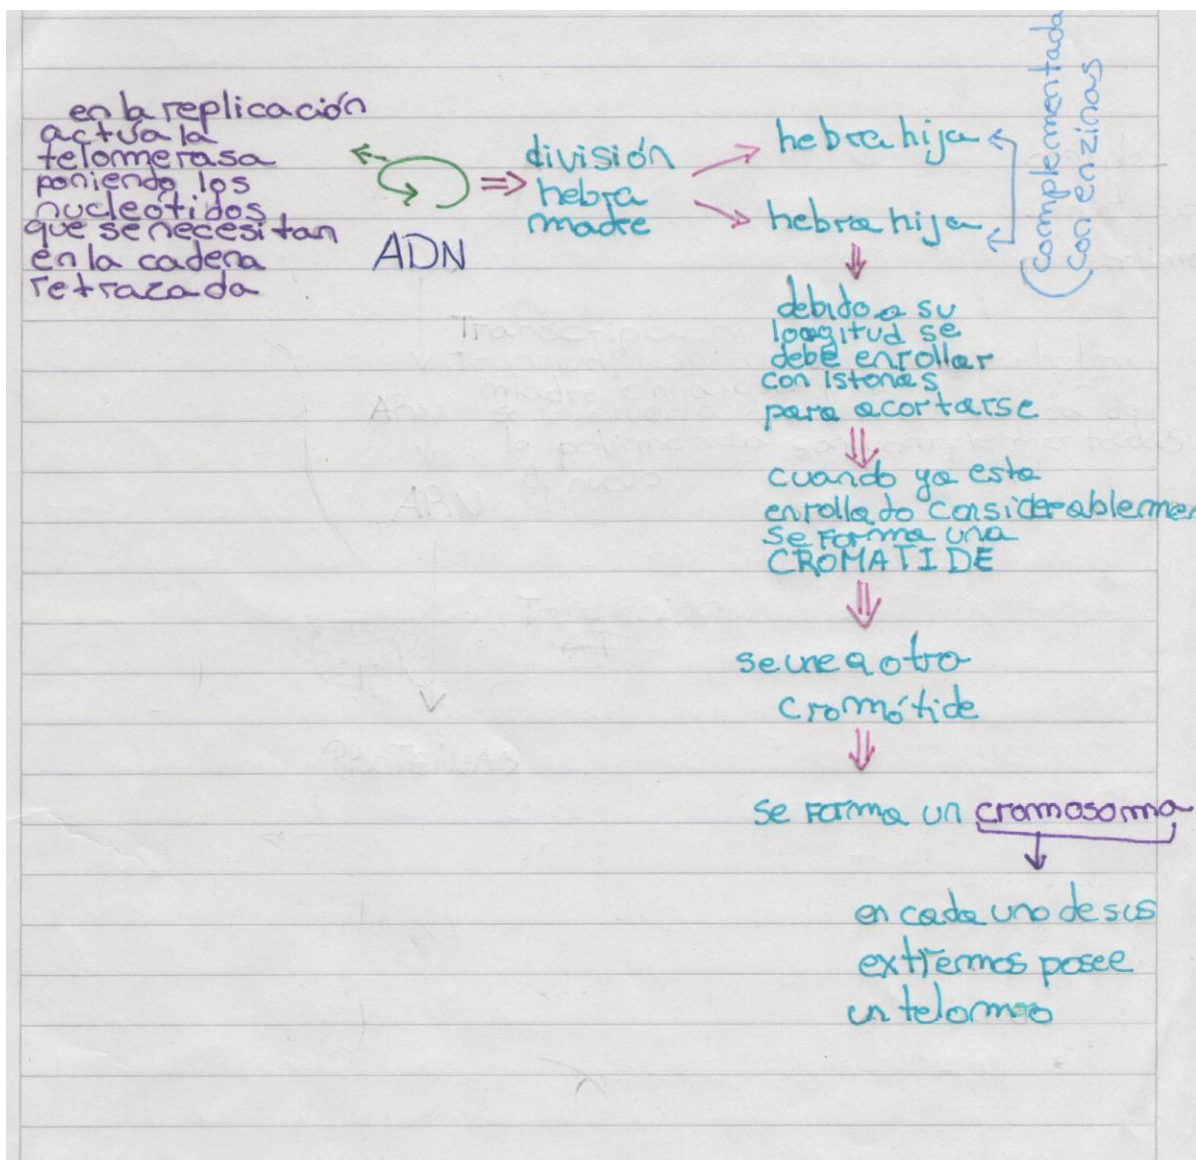 en la replicación
actúa la
telomerasa
poniendo los
nucleótidos
que se necesitan
en la cadena
retrazada
ADN
división
hebra
madre
hebra hija
hebra hija
(complementada
con enzinas
debido a su
longitud se
debe enrollar
con istonas
para acortarse
cuando ya esta
enrollado considerablemen
se forma una
CROMATIDE
se une a otro
cromátide
se forma un cromosoma
en cada uno de sus
extremos posee
un